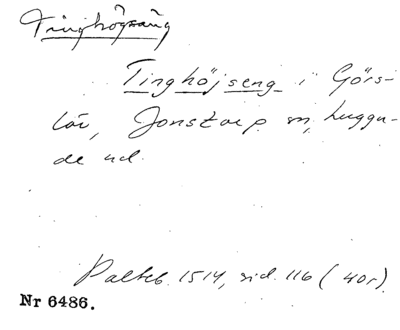 Tinghögsäng
Tinghöjseng i Görs-
löv, Jonstorp sn, Luggu-
de hd.
Palteb. 1514, sid. 116 (40r).
Nr 6486.